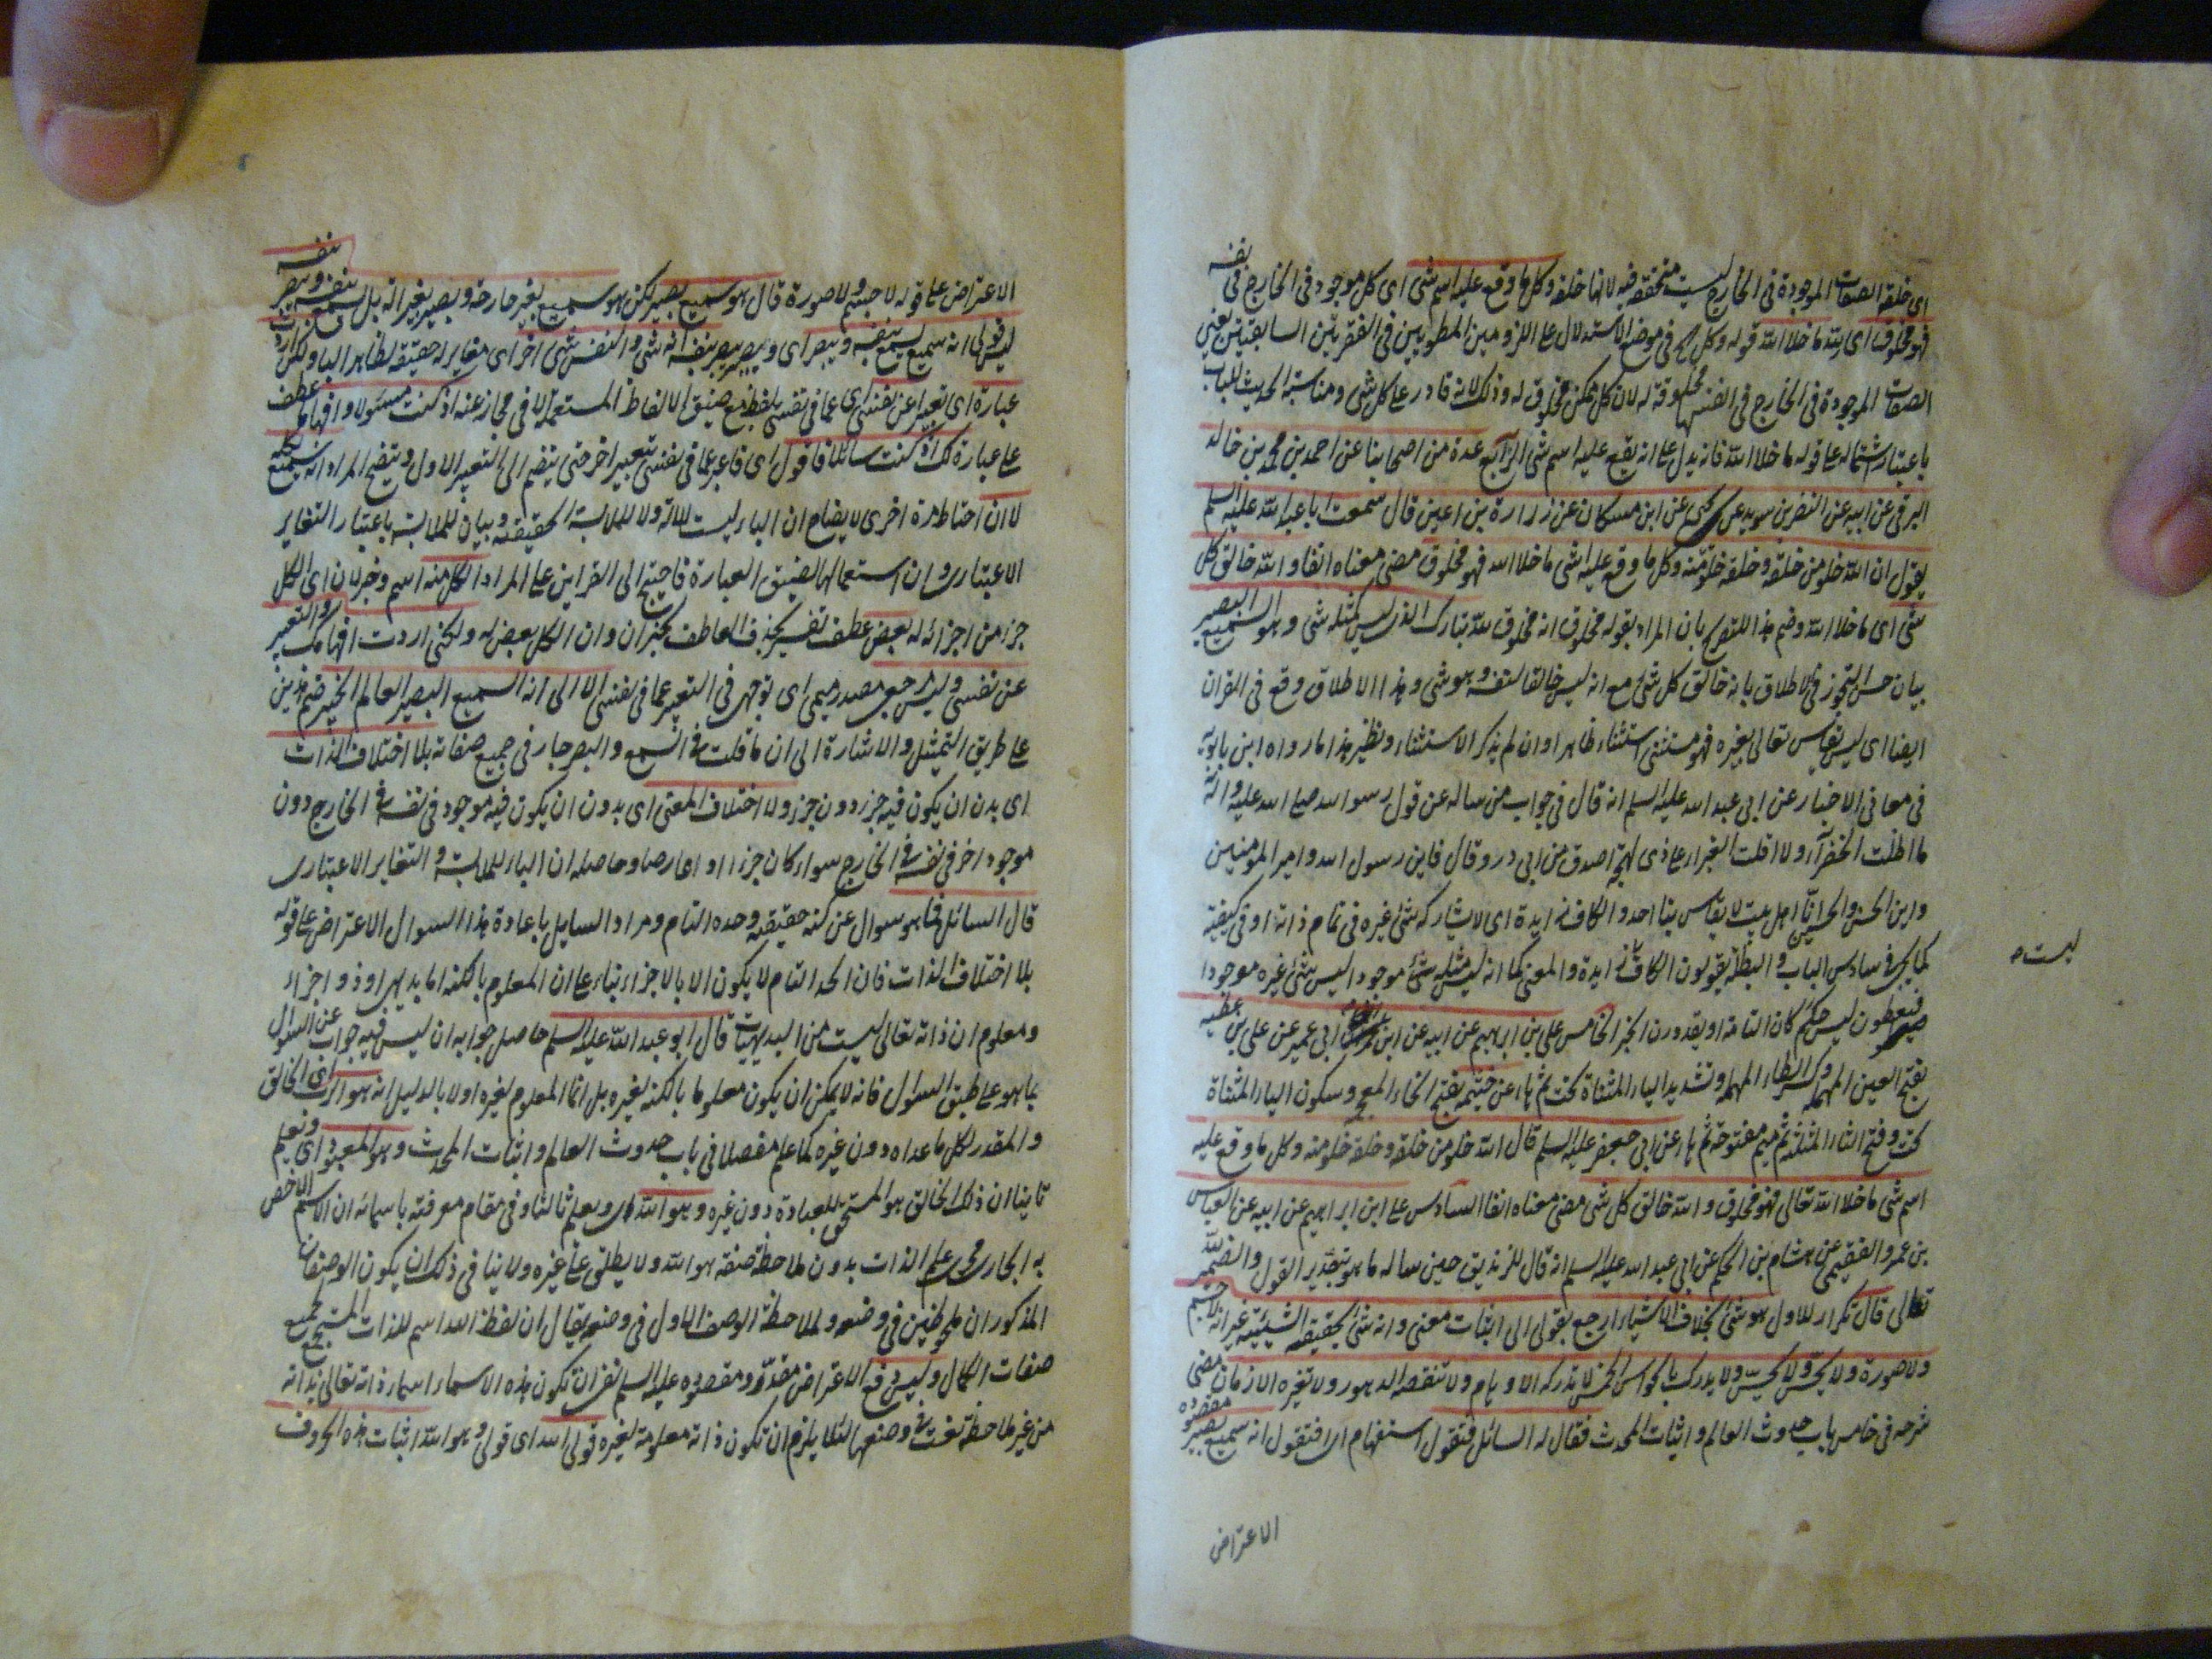 اى خلقه الصفات الموجودة فى الخارج ليست متحققة فيه لانها خلقه وكل ما وقع عليه اسم شئ اى كل موجود فى الخارج فى نفسه
فهو مخلوق اى لله ما خلا الله قوله وكل فى موضع الاستدلال على اللزومين المطويين فى الفقرتين السابقتين يعنى
الصفات الموجودة فى الخارج فى انفسها مخلوقة له لان كل ممكن مخلوق له وذلك لانه قادر على كل شئ ومناسبة الحديث للباب
باعتبار اشتماله على قوله ما خلا الله فانه يدل على انه يقع عليه اسم شئ الرابع عدة من اصحابنا عن احمد بن محمد بن خالد
البرقى عن ابيه عن النضر بن سويد عن يحيى عن ابن مسكان عن زرارة بن اعين قال سمعت ابا عبد الله عليه السلم
يقول ان الله خلو من خلقه وخلقه خلو منه وكل ما وقع عليه شئ ما خلا الله فهو مخلوق مضى معناه انفا والله خالق كل
شئ اى ما خلا الله وضم هذا للتصريح بان المراد بقوله مخلوق انه مخلوق لله تبارك الذى ليس كمثله شئ وهو السميع البصير
بيان حسن التجوز فى الاطلاق بانه خالق كل شئ مع انه ليس خالقا لنفسه وهو شئ وهذا الاطلاق وقع فى القران
ايضا اى ليس يقاس تعالى بغيره فهو مستثنى استثناء ظاهرا وان لم يذكر الاستثناء ونظير هذا ما رواه ابن بابويه
فى معانى الاخبار عن ابى عبد الله عليه السلم انه قال فى جواب من ساله عن قول رسول الله صلى الله عليه واله
ما اظلت الخضراء ولا اقلت الغبراء على ذى لهجة اصدق من ابى ذر وقال فاين رسول الله وامير المومنين
واين الحسن والحسين انا اهل بيت لا يقاس بنا احد والكاف زايدة اى لا يشاركه شئ غيره فى تمام ذاته او فى كيفيته
كما يجئ فى سادس الباب والبطلة يقولون الكاف زايدة والمعنى كما انه ليس مثله شئ موجود اليس شئ غيره موجودا
ليست ه
فيعطون ليس حكم كان التامة او يقدرون الخبر الخامس على بن ابرهيم عن ابيه عن ابن ابى عمير عن على بن عطية
بفتح العين المهملة وكسر الطاء المهملة وتشديد الياء المثناة تحت ثم هاء عن خيثمة بفتح الخاء المعجمة وسكون الياء المثناة
تحت وفتح الثاء المثلثة ثم ميم مفتوحة ثم هاء عن ابى جعفر عليه السلم قال ان الله خلو من خلقه وخلقه خلو منه وكل ما وقع عليه
اسم شئ ما خلا الله تعالى فهو مخلوق والله خالق كل شئ مضى معناه انفا السادس على ابن ابراهيم عن ابيه عن العباس
بن عمرو الفقيمى عن هشام بن الحكم عن ابى عبد الله عليه السلم انه قال للزنديق حين ساله ما هو بتقدير القول والضمير لله
تعالى قال تكرار للاول هو شئ بخلاف الاشياء ارجع بقولى الى اثبات معنى وانه شئ بحقيقة الشيئية غير انه لا جسم
ولا صورة ولا يحس ولا يجس ولا يدرك بالحواس الخمس لا تدركه الاوهام ولا تنقصه الدهور ولا تغيره الازمان مضى
شرحه فى خامس باب حدوث العالم واثبات المحدث فقال له السائل فتقول استفهام اى افتقول انه سميع بصير مقصوده
الاعتراض
الاعتراض على قوله لا جسم ولا صورة قال هو سميع بصير لكن هو سميع بغير جارحة وبصير بغير الة بل يسمع بنفسه ويبصر بنفسه
ليس قولى انه سميع يسمع بنفسه ويبصر اى وبصير يبصر بنفسه انه شئ والنفس شئ اخر اى مغاير له حقيقة لظاهر الباء ولكن اردت
عبارة اى تعبيرا عن نفسى اى عما فى نفسى بلفظ مع ضيق الالفاظ المستعملة الا فى مجاز عنه اذ كنت مسئولا وافهاما عطف
على عبارة لك اذ كنت سائلا فاقول اى فاعبر عما فى نفسى بتعبير اخر حتى ينضم الى التعبير الاول ويتضح المراد انه سميع بكله
لا ان احتاط مرة اخرى لايضاح ان الباء ليست للالة ولا للملابسة الحقيقية وبيان للملابسة باعتبار التغاير
الاعتبارى وان استعمالها لضيق العبارة فاحتيج الى القراين على المراد الكل منه اسم وخبر لان اى الكل
جزء من اجزائه له بعض عطف تفسير بحذف العاطف كخبران وان الكل بعض له ولكنى اردت افهامك والتعبير
عن نفسى وليس مرجعى مصدر ميمى اى توجهى فى التعبير عما فى نفسى الا الى انه السميع البصير العالم الخبير ضم هذين
على طريق التمثيل والاشارة الى ان ما قلت فى السمع والبصر جار فى جميع صفاته بلا اختلاف الذات
اى بدون ان يكون فيه جزء دون جزء ولا اختلاف المعنى اى بدون ان يكون فيه موجود فى نفسه فى الخارج دون
موجود اخر فى نفسه فى الخارج سواء كان جزءا او عارضا وحاصله ان الباء للملابسة والتغاير الاعتبارى
قال السائل فما هو سوال عن كنه حقيقته وحده التام ومراد السايل باعادة هذا السوال الاعتراض على قوله
بلا اختلاف الذات فان الحد التام لا يكون الا بالاجزاء بناء على ان المعلوم بالكنه اما بديهى او ذو اجزاء
ومعلوم ان ذاته تعالى ليست من البديهيات قال ابو عبد الله عليه السلم حاصل جوابه ان ليس فيه جواب عن السؤال
بما هو على طبق السؤال فانه لا يمكن ان يكون معلوما بالكنه لغيره بل انما المعلوم لغيره اولا بالدليل انه هو الرب اى الخالق
والمقدر لكل ما عداه دون غيره كما علم مفصلا فى باب حدوث العالم واثبات المحدث وهو المعبود اى ونعلم
ثانيا ان ذلك الخالق هو المستحق للعبادة دون غيره وهو الله اى ويعلم ثالثا وفى مقام معرفته باسمائه ان الاسم الاخص
به الجارى مجرى علم الذات بدون ملاحظة صفة هو الله ولا يطلق على غيره ولا ينافى ذلك ان يكون الوصفان
المذكوران ملحوظين فى وضعه ولملاحظة الوصف الاول فى وضعه يقال ان لفظ الله اسم للذات المستجمع لجميع
صفات الكمال وليس دفع الاعتراض مقدر ومقصوده عليه السلم نفى ان تكون هذه الاسماء اسماء ذاته تعالى بذاته
من غير ملاحظة نعت فى وضعها لئلا يلزم ان تكون ذاته معلومة لغيره قولى الله اى قولى وهو الله اثبات هذه الحروف